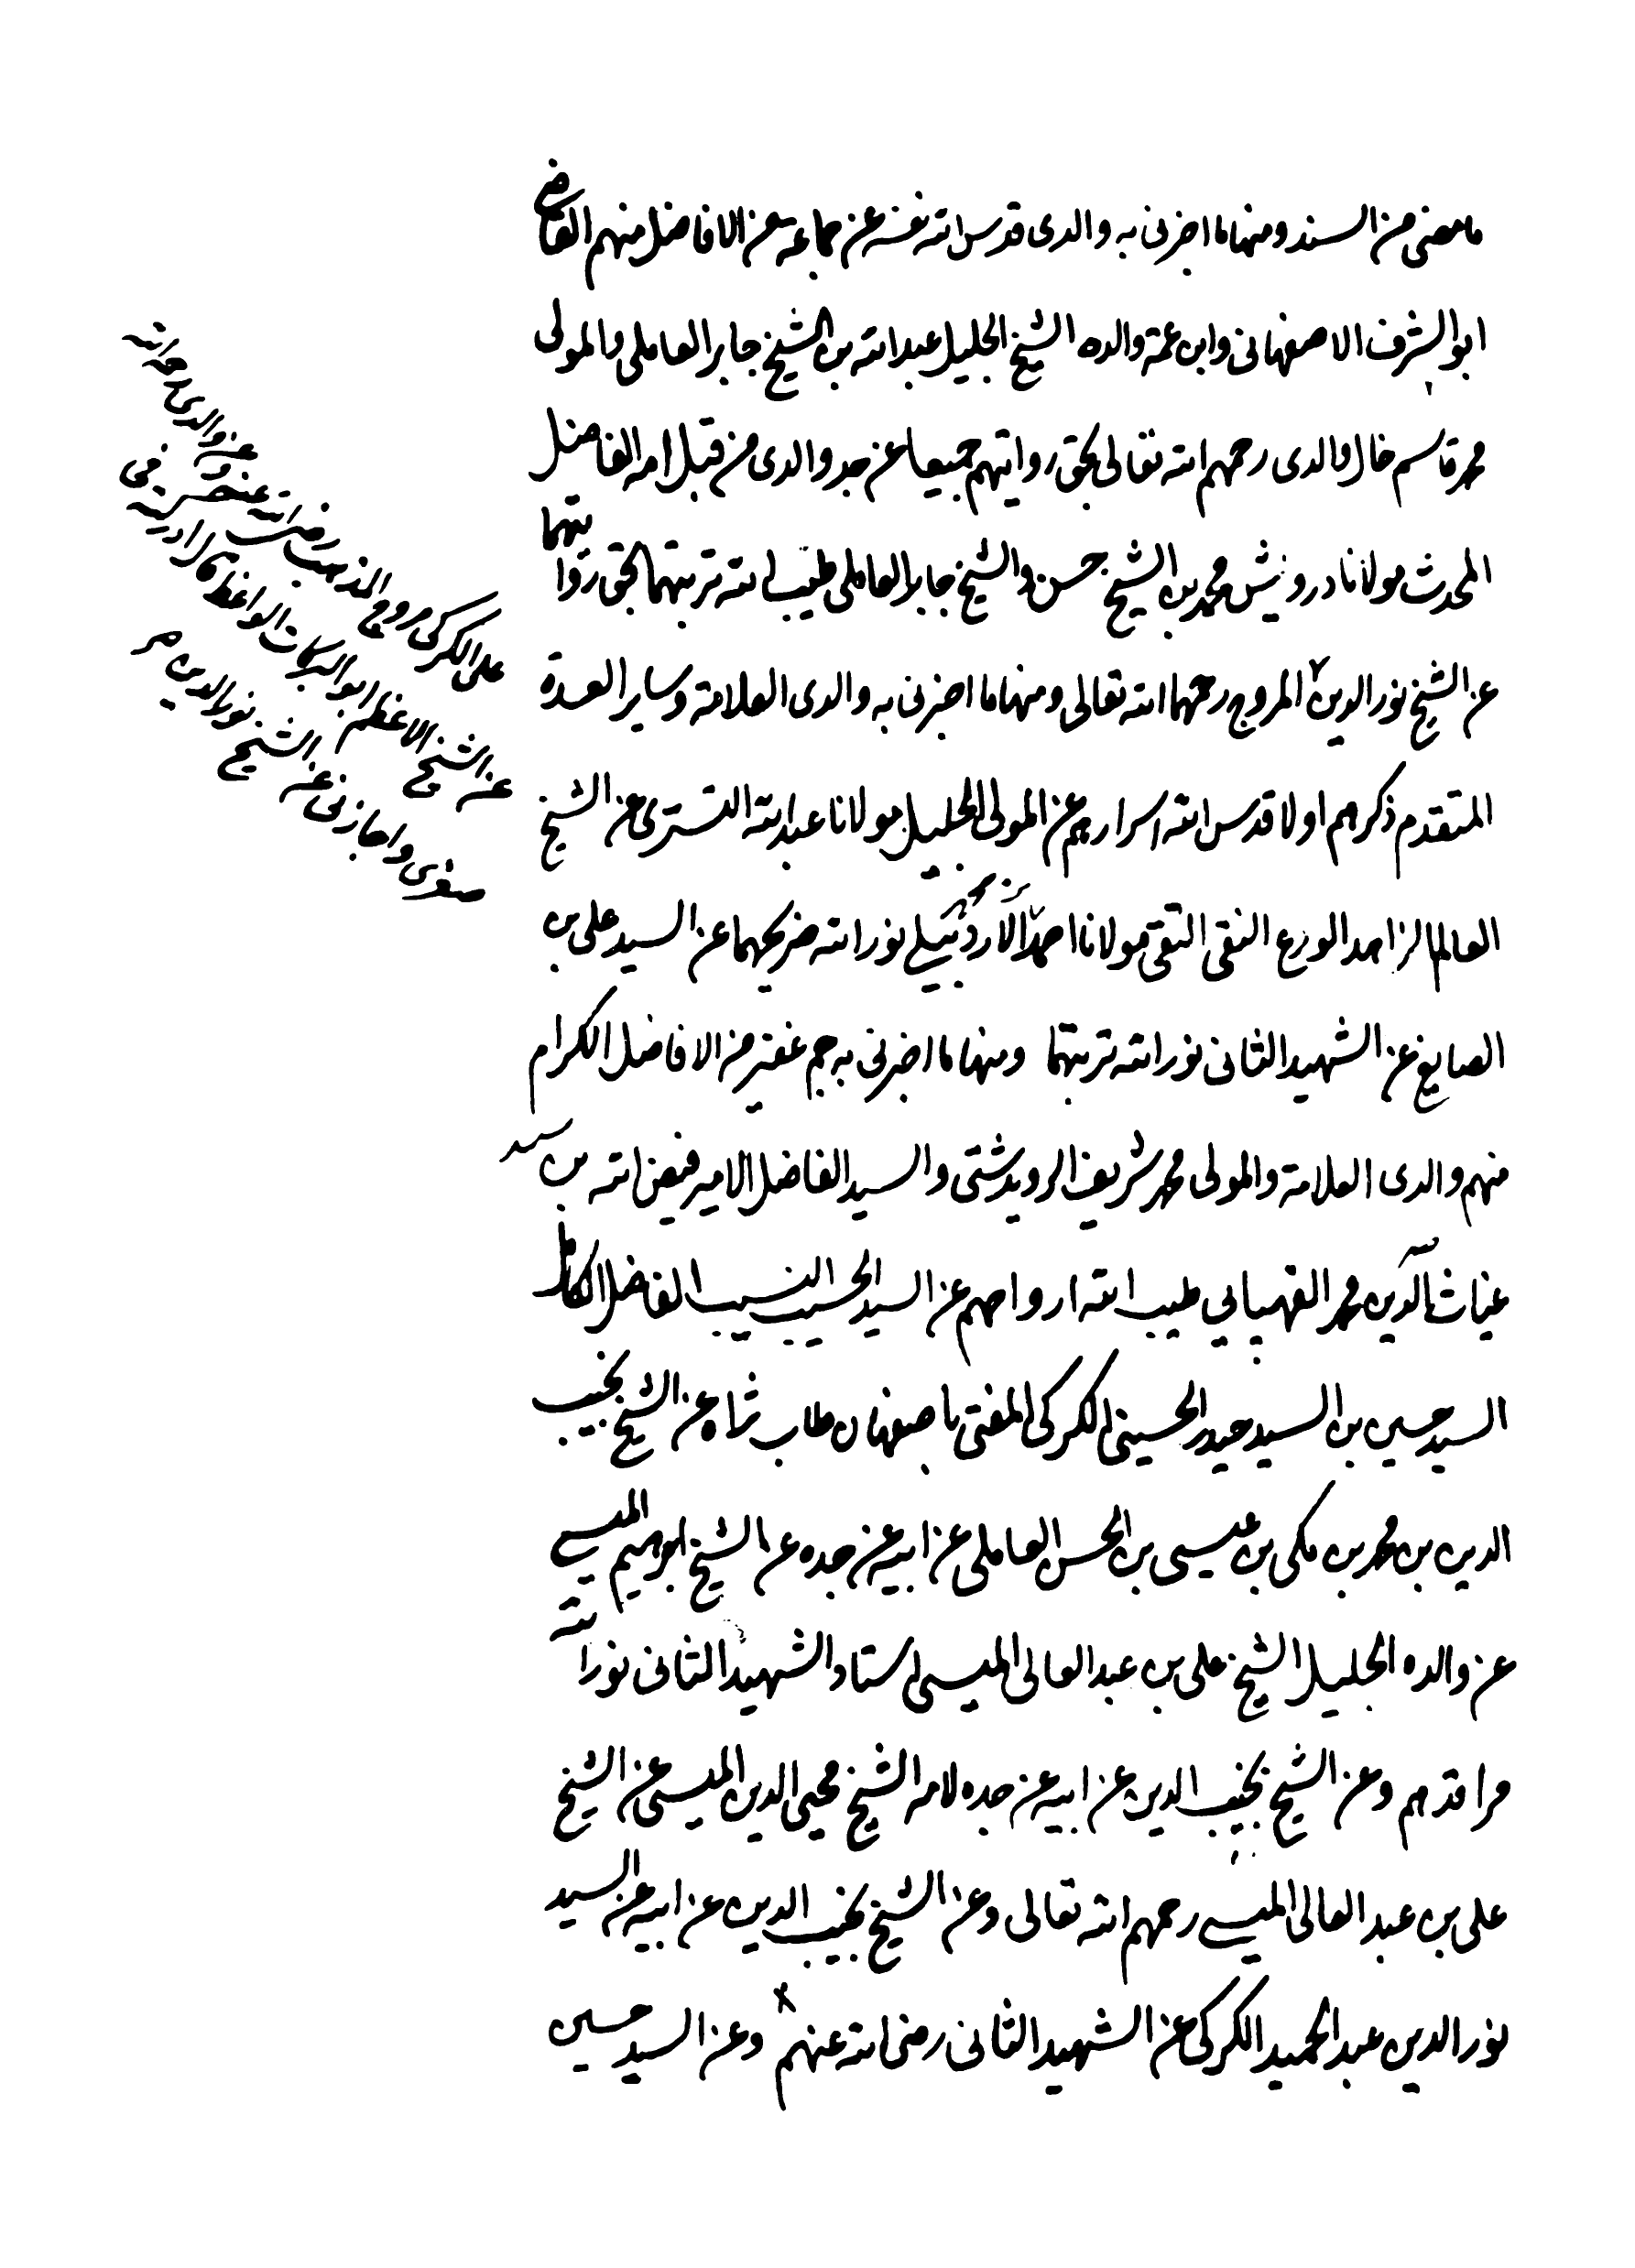 ما مضى من السند ومنها ما اخبرنى به والدى قدس الله نفسه عن جماعة من الافاضل منهم القاضى
ابو الشرف الاصفهانى وابن عمة والده الشيخ الجليل عبد الله بن الشيخ جابر العاملى والمولى
محمد قاسم خال والدى رحمهم الله تعالى بحق روايتهم جميعا عن جد والدى من قبل امه الفاضل
المحدث مولانا درويش محمد بن الشيخ حسن والشيخ جابر العاملى طيب الله تربتهما بحق روايتهما
عن الشيخ نور الدين المروج رحمهما الله تعالى ومنها ما اخبرنى به والدى العلامة وساير العدة
المتقدم ذكرهم اولا قدس الله اسرارهم عن المولى الجليل مولانا عبد الله التسترى عن الشيخ
العالم الزاهد الورع النقى التقى مولانا احمد الاردبيلى نور الله ضريحهما عن السيد على بن
الصايغ عن الشهيد الثانى نور الله تربتهما ومنها ما اخبرنى به جم غفير من الافاضل الكرام
منهم والدى العلامة والمولى محمد شريف الرويدشتى والسيد الفاضل الامير فيض الله بن سيد
غياث الدين محمد القهپايى طيب الله ارواحهم عن السيد الحسيب النسيب الفاضل الكامل
السيد حسين بن السيد حيدر الحسينى الكركى المفتى باصفهان طاب ثراه عن الشيخ نجيب
الدين بن محمد بن مكى بن عيسى بن الحسن العاملى عن ابيه عن جده عن الشيخ ابرهيم الميسى
عن والده الجليل الشيخ على بن عبد العالى الميسى استاد الشهيد الثانى نور الله
مراقدهم وعن الشيخ نجيب الدين عن ابيه عن جده لامه الشيخ محيى الدين الميسى عن الشيخ
على بن عبد العالى الميسى رحمهم الله تعالى وعن الشيخ نجيب الدين عن ابيه عن السيد
نور الدين عبد الحميد الكركى عن الشهيد الثانى رضى الله عنهم وعن السيد حسين
عن والدى رحمه الله
على الكركى مروج المذهب رضى الله عنه
عن الشيخ الاعظم ابو البركات الواعظ
صغرى واجازنى عن الشيخ نور الدين